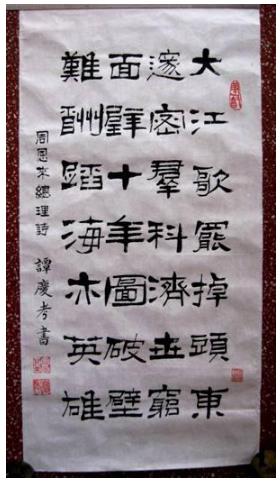 大江歌罷掉頭東
邃密羣科濟世窮
面壁十年圖破壁
難酬蹈海亦英雄
周恩來總理詩 譚慶孝書